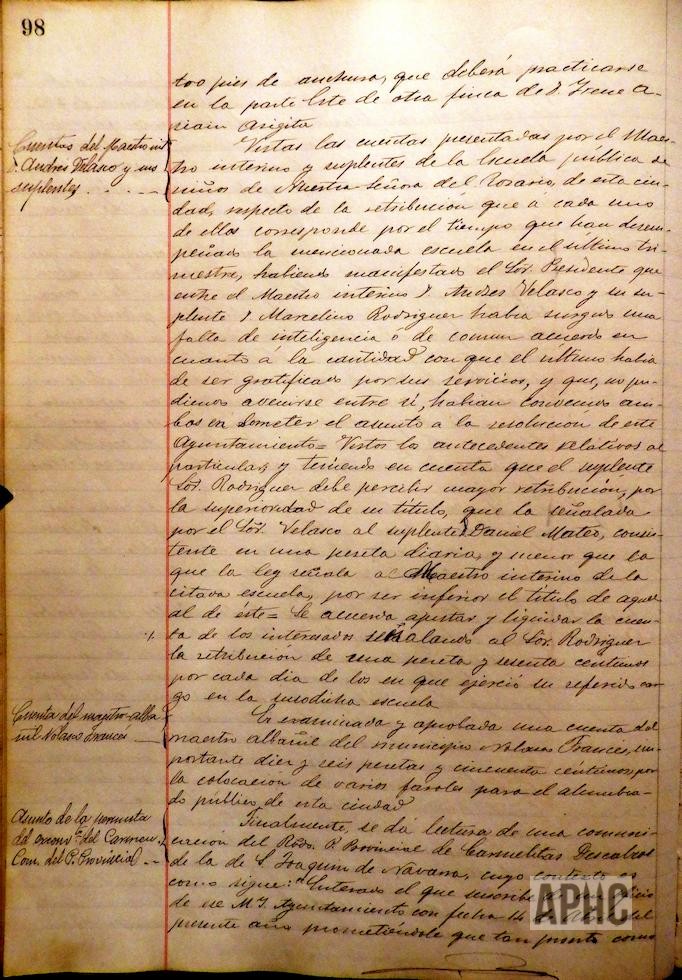 98
tro pies de anchura, que deberá practicarse
en la parte Este de otra finca de D. Irene A-
Cuentas del Maestro int.
D. Andrés Velasco y sus
suplentes
Vistas las cuentas presentadas por el Maes-
tro interino y suplentes de la Escuela pública de
niños de Nuestra Señora del Rosario, de esta ciu-
dad, respecto de la retribucion que a cada uno
de ellos corresponde por el tiempo que han desem-
peñado la mencionada escuela en el último tri-
mestre, habiendo manifestado el Sor. Presidente que
entre el Maestro interino D. Andrés Velasco y su su-
plente D. Marcelino Rodriguez habia surgido una
falta de inteligencia ó de comun acuerdo en
cuanto á la cantidad con que el último habia
de ser gratificado por sus servicios, y que, no pu-
diendo avenirse entre sí, habian convenido am-
bos en someter el asunto a la resolucion de este
Ayuntamiento = Vistos los antecedentes relativos al
particular, y teniendo en cuenta que el suplente
Sor. Rodriguez debe percibir mayor retribución, por
la superioridad de su título, que la señalada
por el Sor. Velasco al suplente D. Daniel Mateo, consis-
tente en una peseta diaria, y menor que la
que la ley señala al Maestro interino de la
citada escuela, por ser inferior el título de aquel
al de éste = Se acuerda ajustar y liquidar la cuen-
ta de los interesados señalando al Sor. Rodriguez
la retribución de una peseta y sesenta centimos
por cada dia de los en que ejerció su referido car-
go en la susodicha escuela
Cuenta del maestro alba-
ñil Nolasco Frances
Es examinada y aprobada una cuenta del
maestro albañil del municipio Nolasco Frances, im-
portante diez y seis pesetas y cincuenta céntimos, por
la colocación de varios faroles para el alumbra-
do público de esta ciudad
Asunto de la permuta
del exconv.to del Carmen.
Com. del P. Provincial
Finalmente, se dá lectura de una comuni-
cacion del Rdo. P. Provincial de Carmelitas Descalzos
de la de S. Joaquin de Navarra, cuyo contexto es
como sigue: "Enterado el que suscribe
de ese M. I. Ayuntamiento con fecha 14 de del
presente año prometiéndole que tan pronto como
APHC